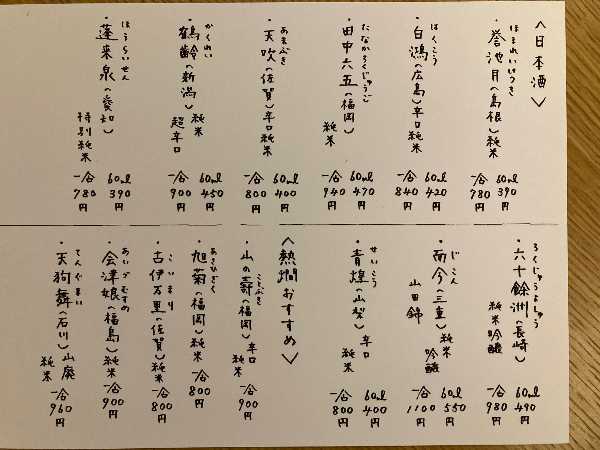 〈日本酒〉
ほまれいけつき
・誉池月（島根）純米
60ml 390
一合 780円
はくこう
・白鴻（広島）辛口純米
60ml 420
一合 840円
たなかろくじゅうご
・田中六五（福岡）
純米
60ml 470
一合 940円
あまぶき
・天吹（佐賀）辛口純米
60ml 400
一合 800円
かくれい
・鶴齢（新潟）純米
超辛口
60ml 450
一合 900円
ほうらいせん
・蓬来泉（愛知）
特別純米
60ml 390
一合 780円
ろくじゅうよしゅう
・六十餘洲（長崎）
純米吟醸
60ml 490
一合 980円
じこん
・而今（三重）純米吟醸
山田錦
60ml 550
一合 1100円
せいこう
・青煌（山梨）辛口
純米
60ml 400
一合 800円
〈熱燗おすすめ〉
ことぶき
・山の壽（福岡）辛口純米
一合 900円
あさひぎく
・旭菊（福岡）純米
一合 800円
こいまり
・古伊万里（佐賀）純米
一合 800円
あいづむすめ
・会津娘（福島）純米
一合 900円
てんぐまい
・天狗舞（石川）山廃
純米
一合 960円